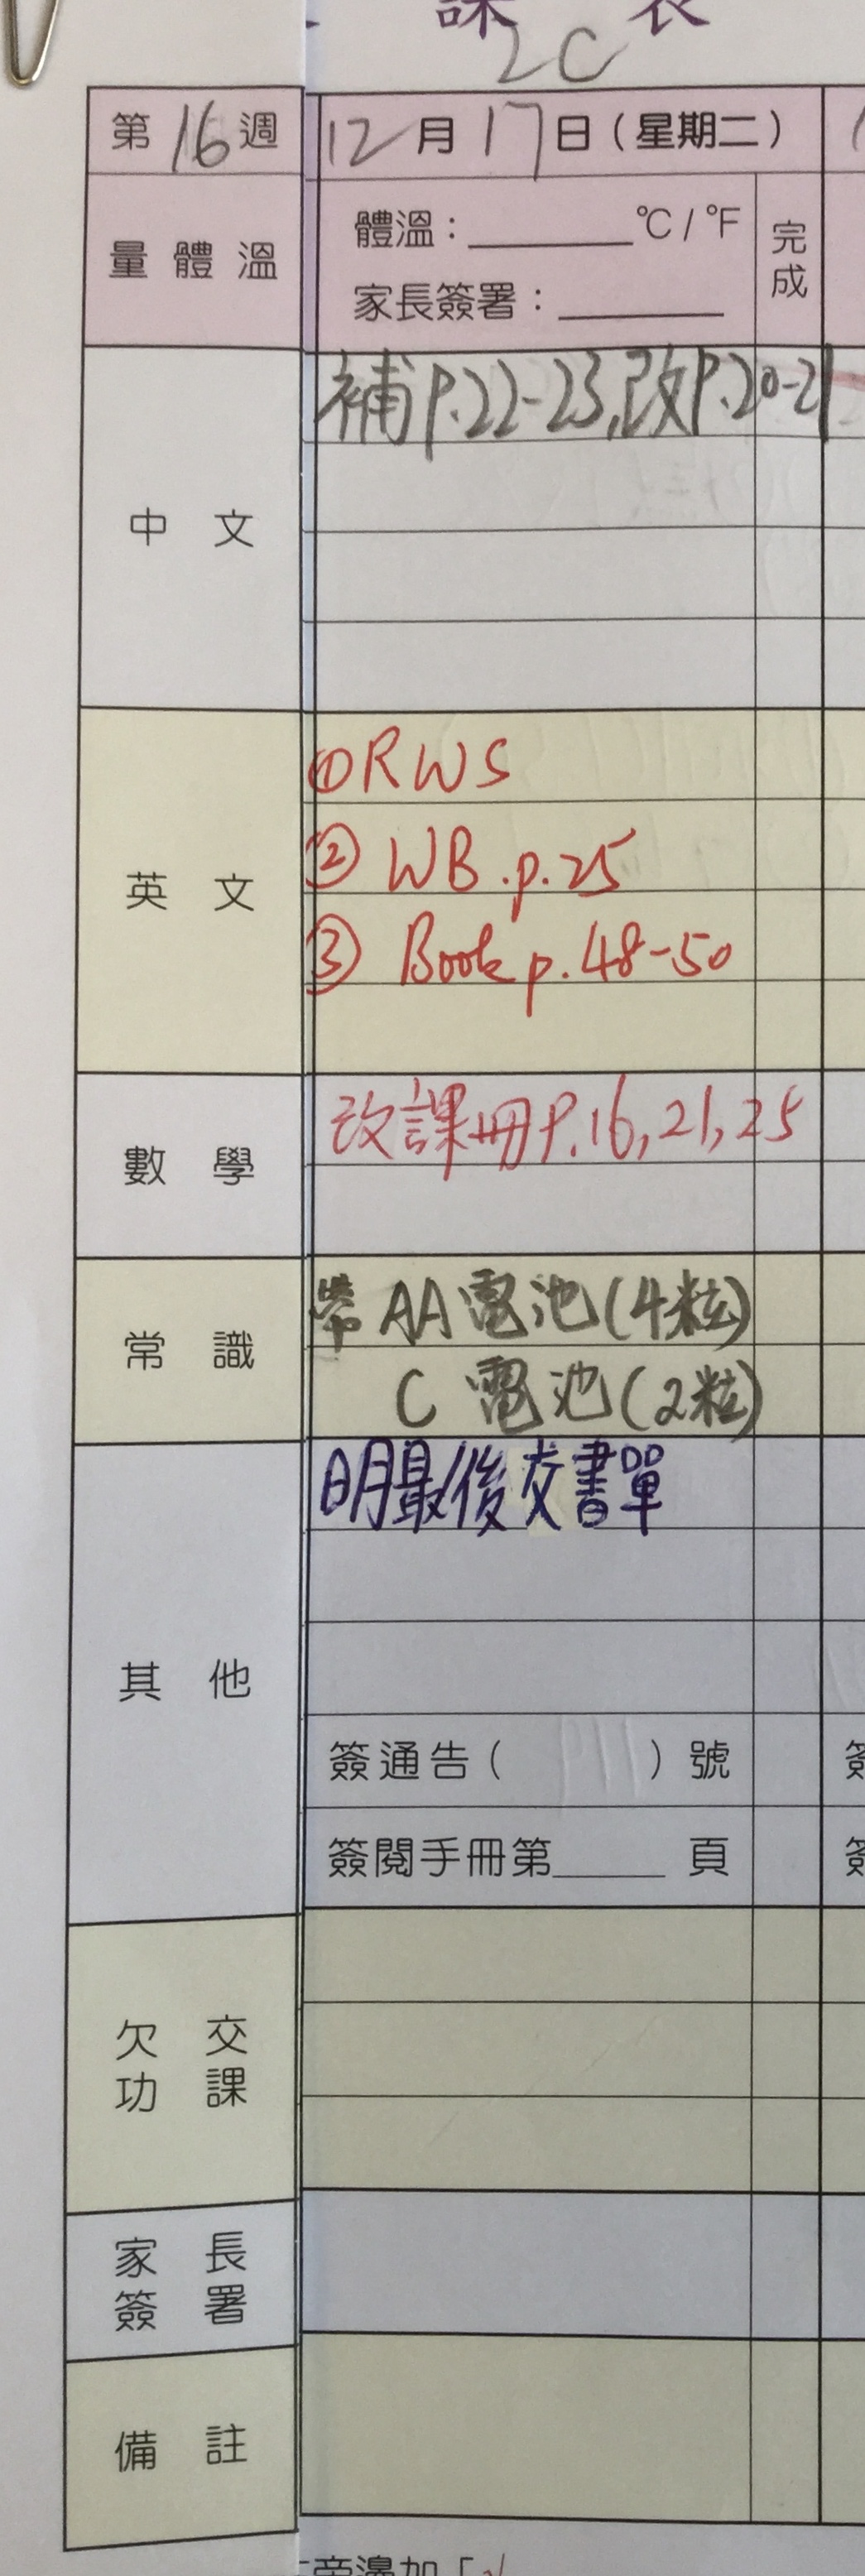 課表
2C
第16週 12月17日(星期二)
量體溫
體溫：______℃/℉
家長簽署：______
完成
中文
補P.22-23,改P.20-21
英文
①RWS
② WB.p.25
③ Book p.48-50
數學
改課冊P.16,21,25
常識
帶 AA電池(4粒)
C 電池(2粒)
其他
明最後交書單
簽通告( )號
簽閱手冊第____頁
欠交功課
家長簽署
備註
旁邊加「